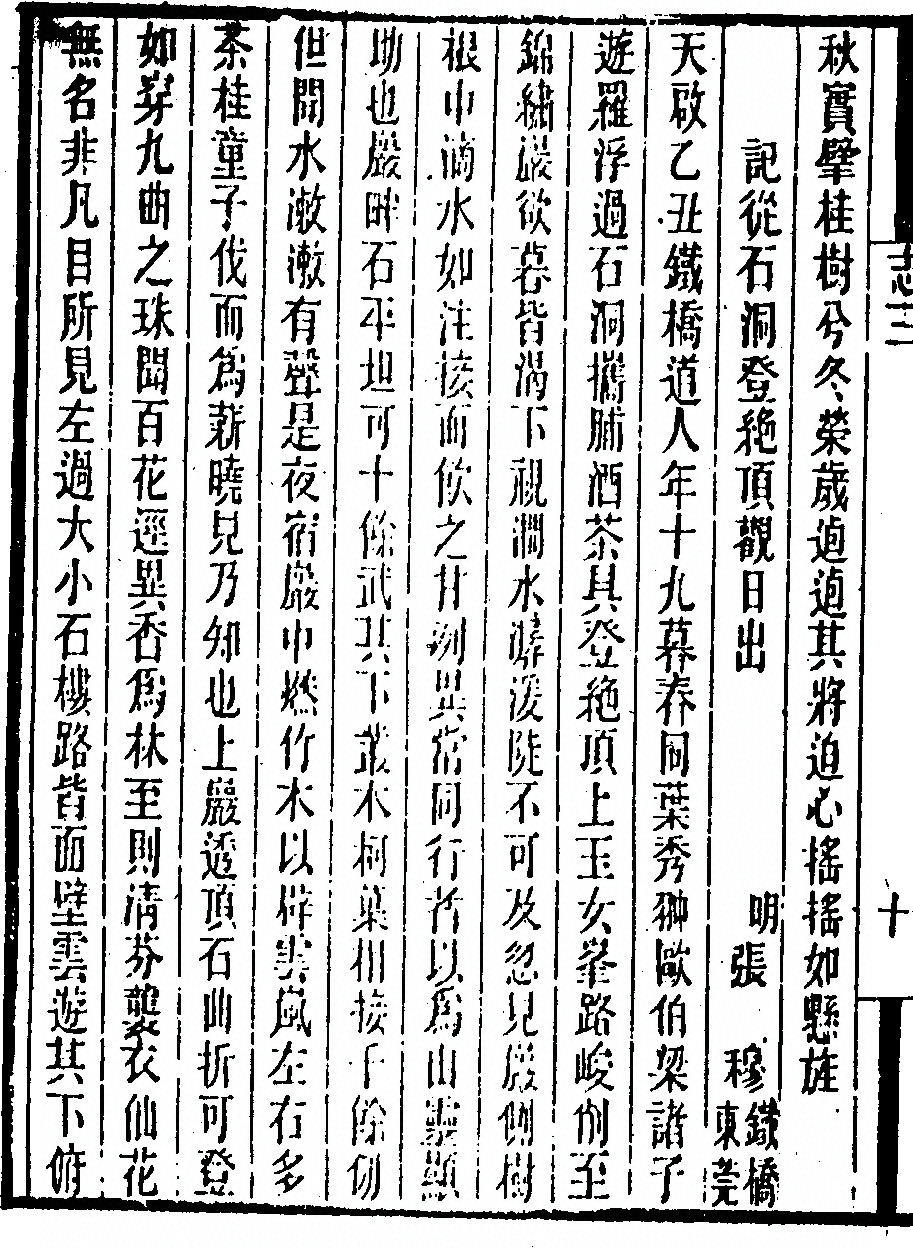 志三
十
秋實攀桂樹兮冬榮歲逌逌其將迫心搖搖如懸旌
記從石洞登絶頂觀日出 明張 穆鐵橋東莞
天啟乙丑鐵橋道人年十九暮春同葉秀翀歐伯梁諸子
遊羅浮過石洞攜脯酒茶具登絶頂上玉女峯路峻削至
錦繡巖欲暮皆渴下視澗水潺湲陡不可及忽見巖側樹
根中滴水如注接而飲之甘冽異常同行者以爲山靈顯
助也巖畔石平坦可十餘武其下叢木柯葉相接千餘仞
但聞水漱漱有聲是夜宿巖中燃竹木以辟雲嵐左右多
茶桂童子伐而爲薪曉見乃知也上巖透頂石曲折可登
如穿九曲之珠聞百花逕異香爲林至則清芬襲衣仙花
無名非凡目所見左過大小石樓路皆面壁雲遊其下俯